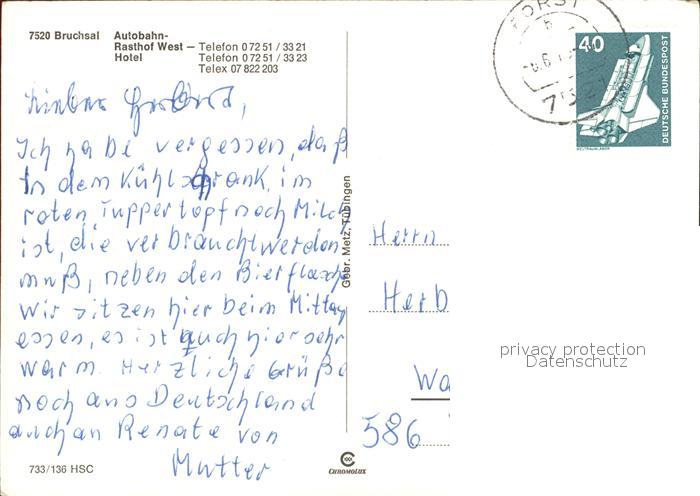 7520 Bruchsal Autobahn-
Rasthof West – Telefon 0 72 51 / 33 21
Hotel Telefon 0 72 51 / 33 23
Telex 07 822 203
Lieber
Ich habe vergessen, daß
in dem Kühlschrank, im
roten Tuppertopf noch Milch
ist, die verbraucht werden
muß, neben den Bierflasche
Wir sitzen hier beim Mittag
essen, es ist auch hier sehr
warm. Herzliche Grüße
noch aus Deutschland
auch an Renate von
Mutter
733/136 HSC
Gebr. Metz, Tübingen
CHROMOLUX
FORST
7521
40
DEUTSCHE BUNDESPOST
WELTRAUMLABOR
Herrn
Herb
Wa
586
privacy protection
Datenschutz